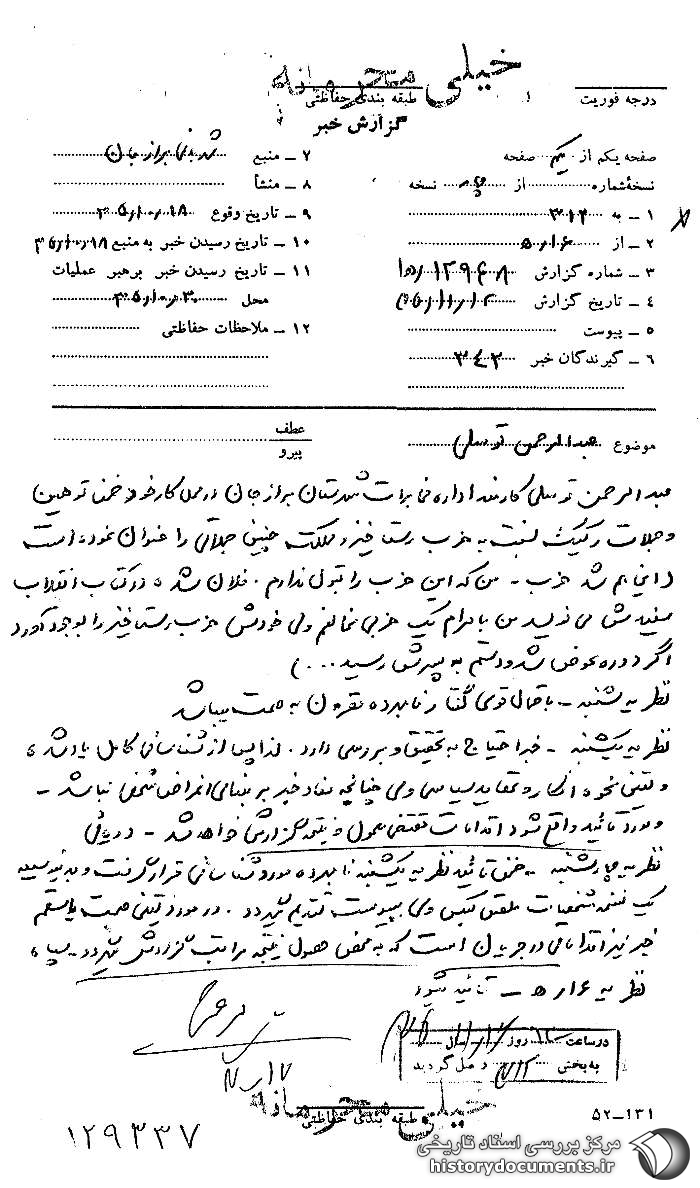 خیلی محرمانه
درجه فوریت
طبقه بندی حفاظتی
گزارش خبر
صفحه یکم از یکم صفحه
نسخهٔ شماره از نسخه
۱ ـ به ۳۱۲
۲ ـ از ۵ه۶
۳ ـ شماره گزارش ۱۲۹۶۸
۴ ـ تاریخ گزارش
۵ ـ پیوست
۶ ـ گیرندگان خبر ۳۴۲
۷ ـ منبع
۸ ـ منشأ
۹ ـ تاریخ وقوع ۳۵٫۱۰٫۱۸
۱۰ ـ تاریخ رسیدن خبر به منبع ۳۵٫۱۰٫۱۸
۱۱ ـ تاریخ رسیدن خبر برهبر عملیات
محل ۳۵٫۱۰٫۳۰
۱۲ ـ ملاحظات حفاظتی
موضوع عبدالرحمن توسلی
عطف
پیرو
عبدالرحمن توسلی کارمند اداره مخابرات شهرستان برازجان در محل کار خود ضمن توهین
و جملات رکیک نسبت به حزب رستاخیز و مملکت چنین جملاتی را عنوان نموده است
(اینهم شد حزب ـ من که این حزب را قبول ندارم. فلان شده در کتاب انقلاب
سفیدش می نویسد من با مرام یک حزبی مخالفم ولی خودش حزب رستاخیز را بوجود آورد
اگر دوره عوض شد و دستم به پسرش رسید ...)
نظریه شنبه ـ باحتمال قوی گفتار نامبرده مقرون به صحت میباشد
نظریه یکشنبه ـ خبر احتیاج به تحقیق و بررسی دارد. لذا پس از شناسائی کامل یاد شده
و تعیین نحوه افکار و عقاید سیاسی وی چنانچه مفاد خبر بر مبنای اغراض شخصی نباشد ـ
و مورد تائید واقع شود اقدامات مقتضی معمول و نتیجه گزارش خواهد شد ـ
نظریه چهارشنبه ـ ضمن تائید نظریه یکشنبه نامبرده مورد شناسائی قرار گرفت و بدینوسیله
یک نسخه مشخصات ملصق بعکس وی بپیوست تقدیم میگردد. در مورد تعیین صحت یا سقم
خبر نیز اقداماتی در جریان است که به محض حصول نتیجه مراتب گزارش میگردد ـ
نظریه ۵ه۶ ـ تائید میشود
در ساعت روز سال
به بخش ۳۱۲ واصل گردید
خیلی محرمانه
طبقه بندی حفاظتی
۵۲ـ۱۳۱
۱۲۹۳۳۷
مرکز بررسی اسناد تاریخی
historydocuments.ir